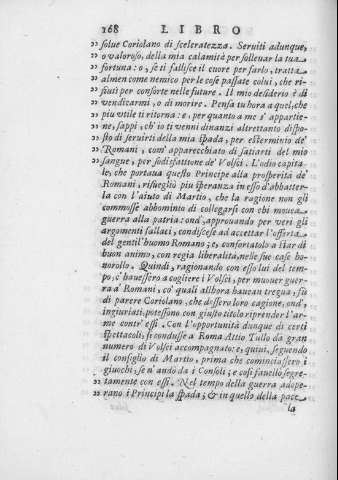 168 LIBRO
” solue Coriolano di sceleratezza. Seruiti adunque,
” o valoroso, della mia calamità per solleuar la tua
” fortuna: o, se ti fallisce il cuore per farlo, tratta
” almen come nemico per le cose passate colui, che ri-
” fiuti per consorte nelle future. Il mio desiderio è di
” vendicarmi, o di morire. Pensa tu hora a quel, che
” piu vtile ti ritorna: e, per quanto a me s' appartie-
” ne, sappi, ch' io ti venni dinanzi altrettanto dispo-
” sto di seruirti della mia spada, per esterminio de'
” Romani, com' apparecchiato di satiarti del mio
” sangue, per sodisfattione de' Volsci. L'odio capita-
le, che portaua questo Principe alla prosperità de'
Romani, risuegliò piu speranza in esso d'abbatter-
la con l'aiuto di Martio, che la ragione non gli
commosse abbominio di collegarsi con chi mouea
guerra alla patria: ond', approuando per veri gli
argomenti fallaci, condiscese ad accettar l'offerta
del gentil'huomo Romano; e, confortatolo a star di
buon animo, con regia liberalità, nelle sue case ho-
norollo. Quindi, ragionando con esso lui del tem-
po, c' hauessero a cogliere i Volsci, per muouer guer-
ra a' Romani, co' quali allhora haueau tregua, fù
di parere Coriolano, che dessero loro cagione, ond',
ingiuriati, potessono con giusto titolo riprender l'ar-
me contr' essi. Con l'opportunità dunque di certi
spettacoli, si condusse a Roma Attio Tullo da gran
numero di Volsci accompagnato: e, quiui, seguendo
il consiglio di Martio, prima che cominciassero i
” giuochi, se n' andò da i Consoli; e così fauellò segre-
” tamente con essi. Nel tempo della guerra adope-
” rano i Principi la spada; & in quello della pace
la